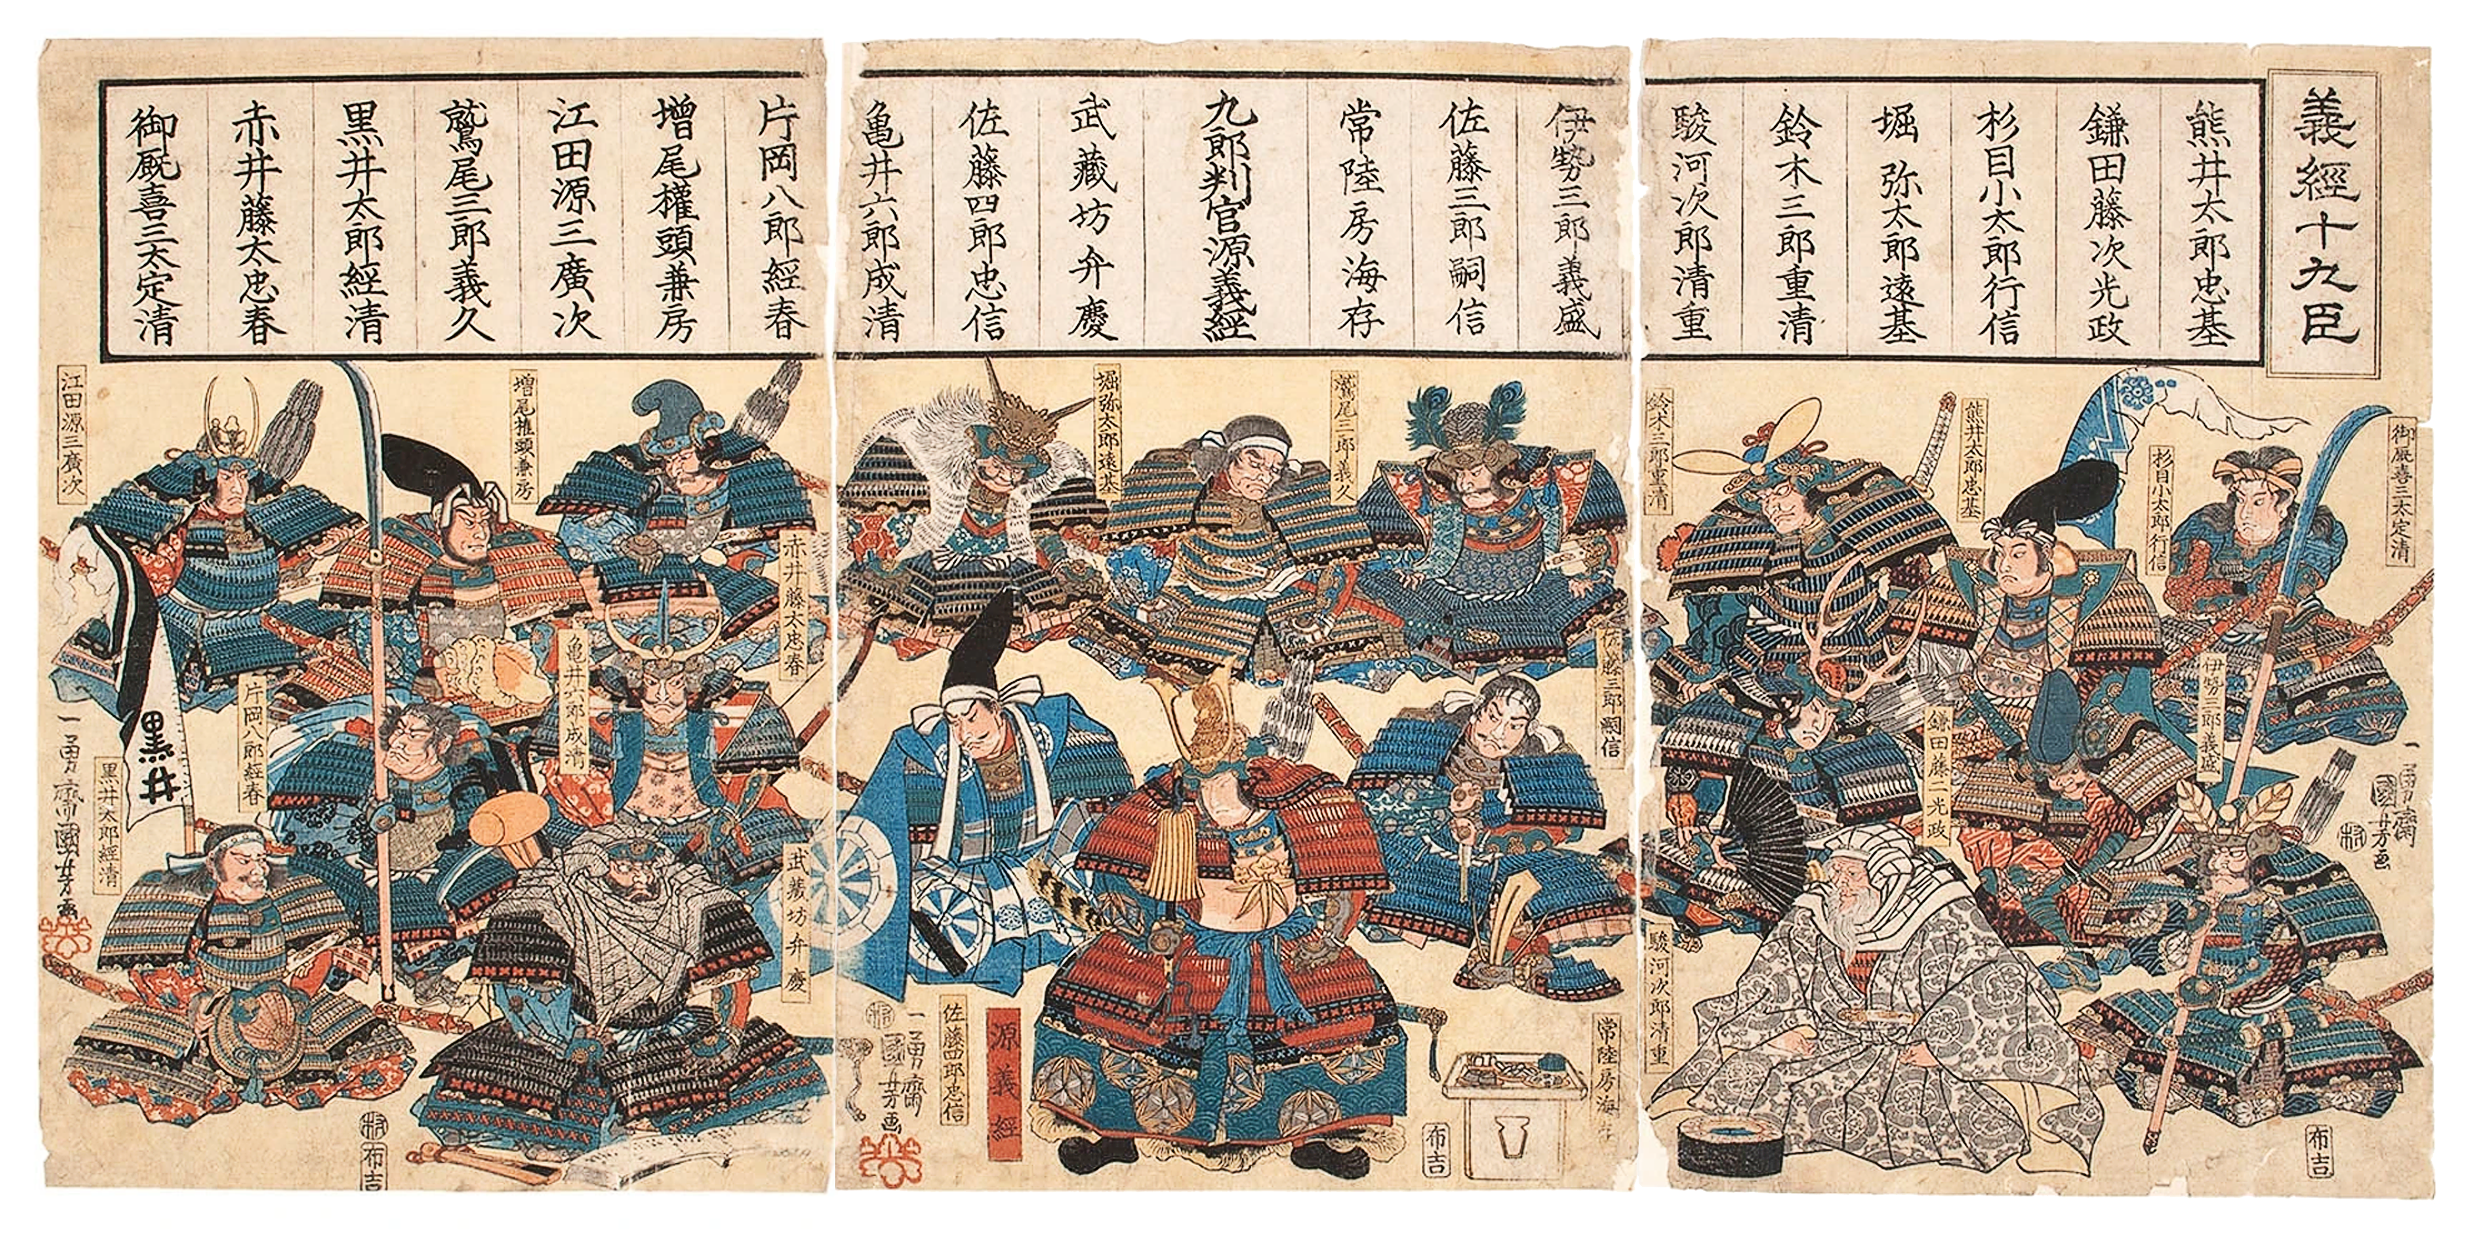 義經十九臣
熊井太郎忠基
鎌田藤次光政
杉目小太郎行信
堀弥太郎遠基
鈴木三郎重清
駿河次郎清重
伊勢三郎義盛
佐藤三郎嗣信
常陸房海存
九郎判官源義経
武藏坊弁慶
佐藤四郎忠信
亀井六郎成清
片岡八郎經春
增尾權頭兼房
江田源三廣次
鷲尾三郎義久
黒井太郎經清
赤井藤太忠春
御厩喜三太定清
御厩喜三太定清
杉目小太郎行信
熊井太郎忠基
鈴木三郎重清
伊勢三郎義盛
鎌田藤二光政
駿河次郎清重
一勇齋國芳画
布吉
鷲尾三郎義久
堀弥太郎遠基
佐藤三郎嗣信
常陸房海存
源義經
佐藤四郎忠信
一勇齋國芳画
布吉
増尾権頭兼房
江田源三廣次
赤井藤太忠春
亀井六郎成清
片岡八郎經春
武蔵坊弁慶
黒井太郎經清
黒井
一勇齋國芳画
布吉